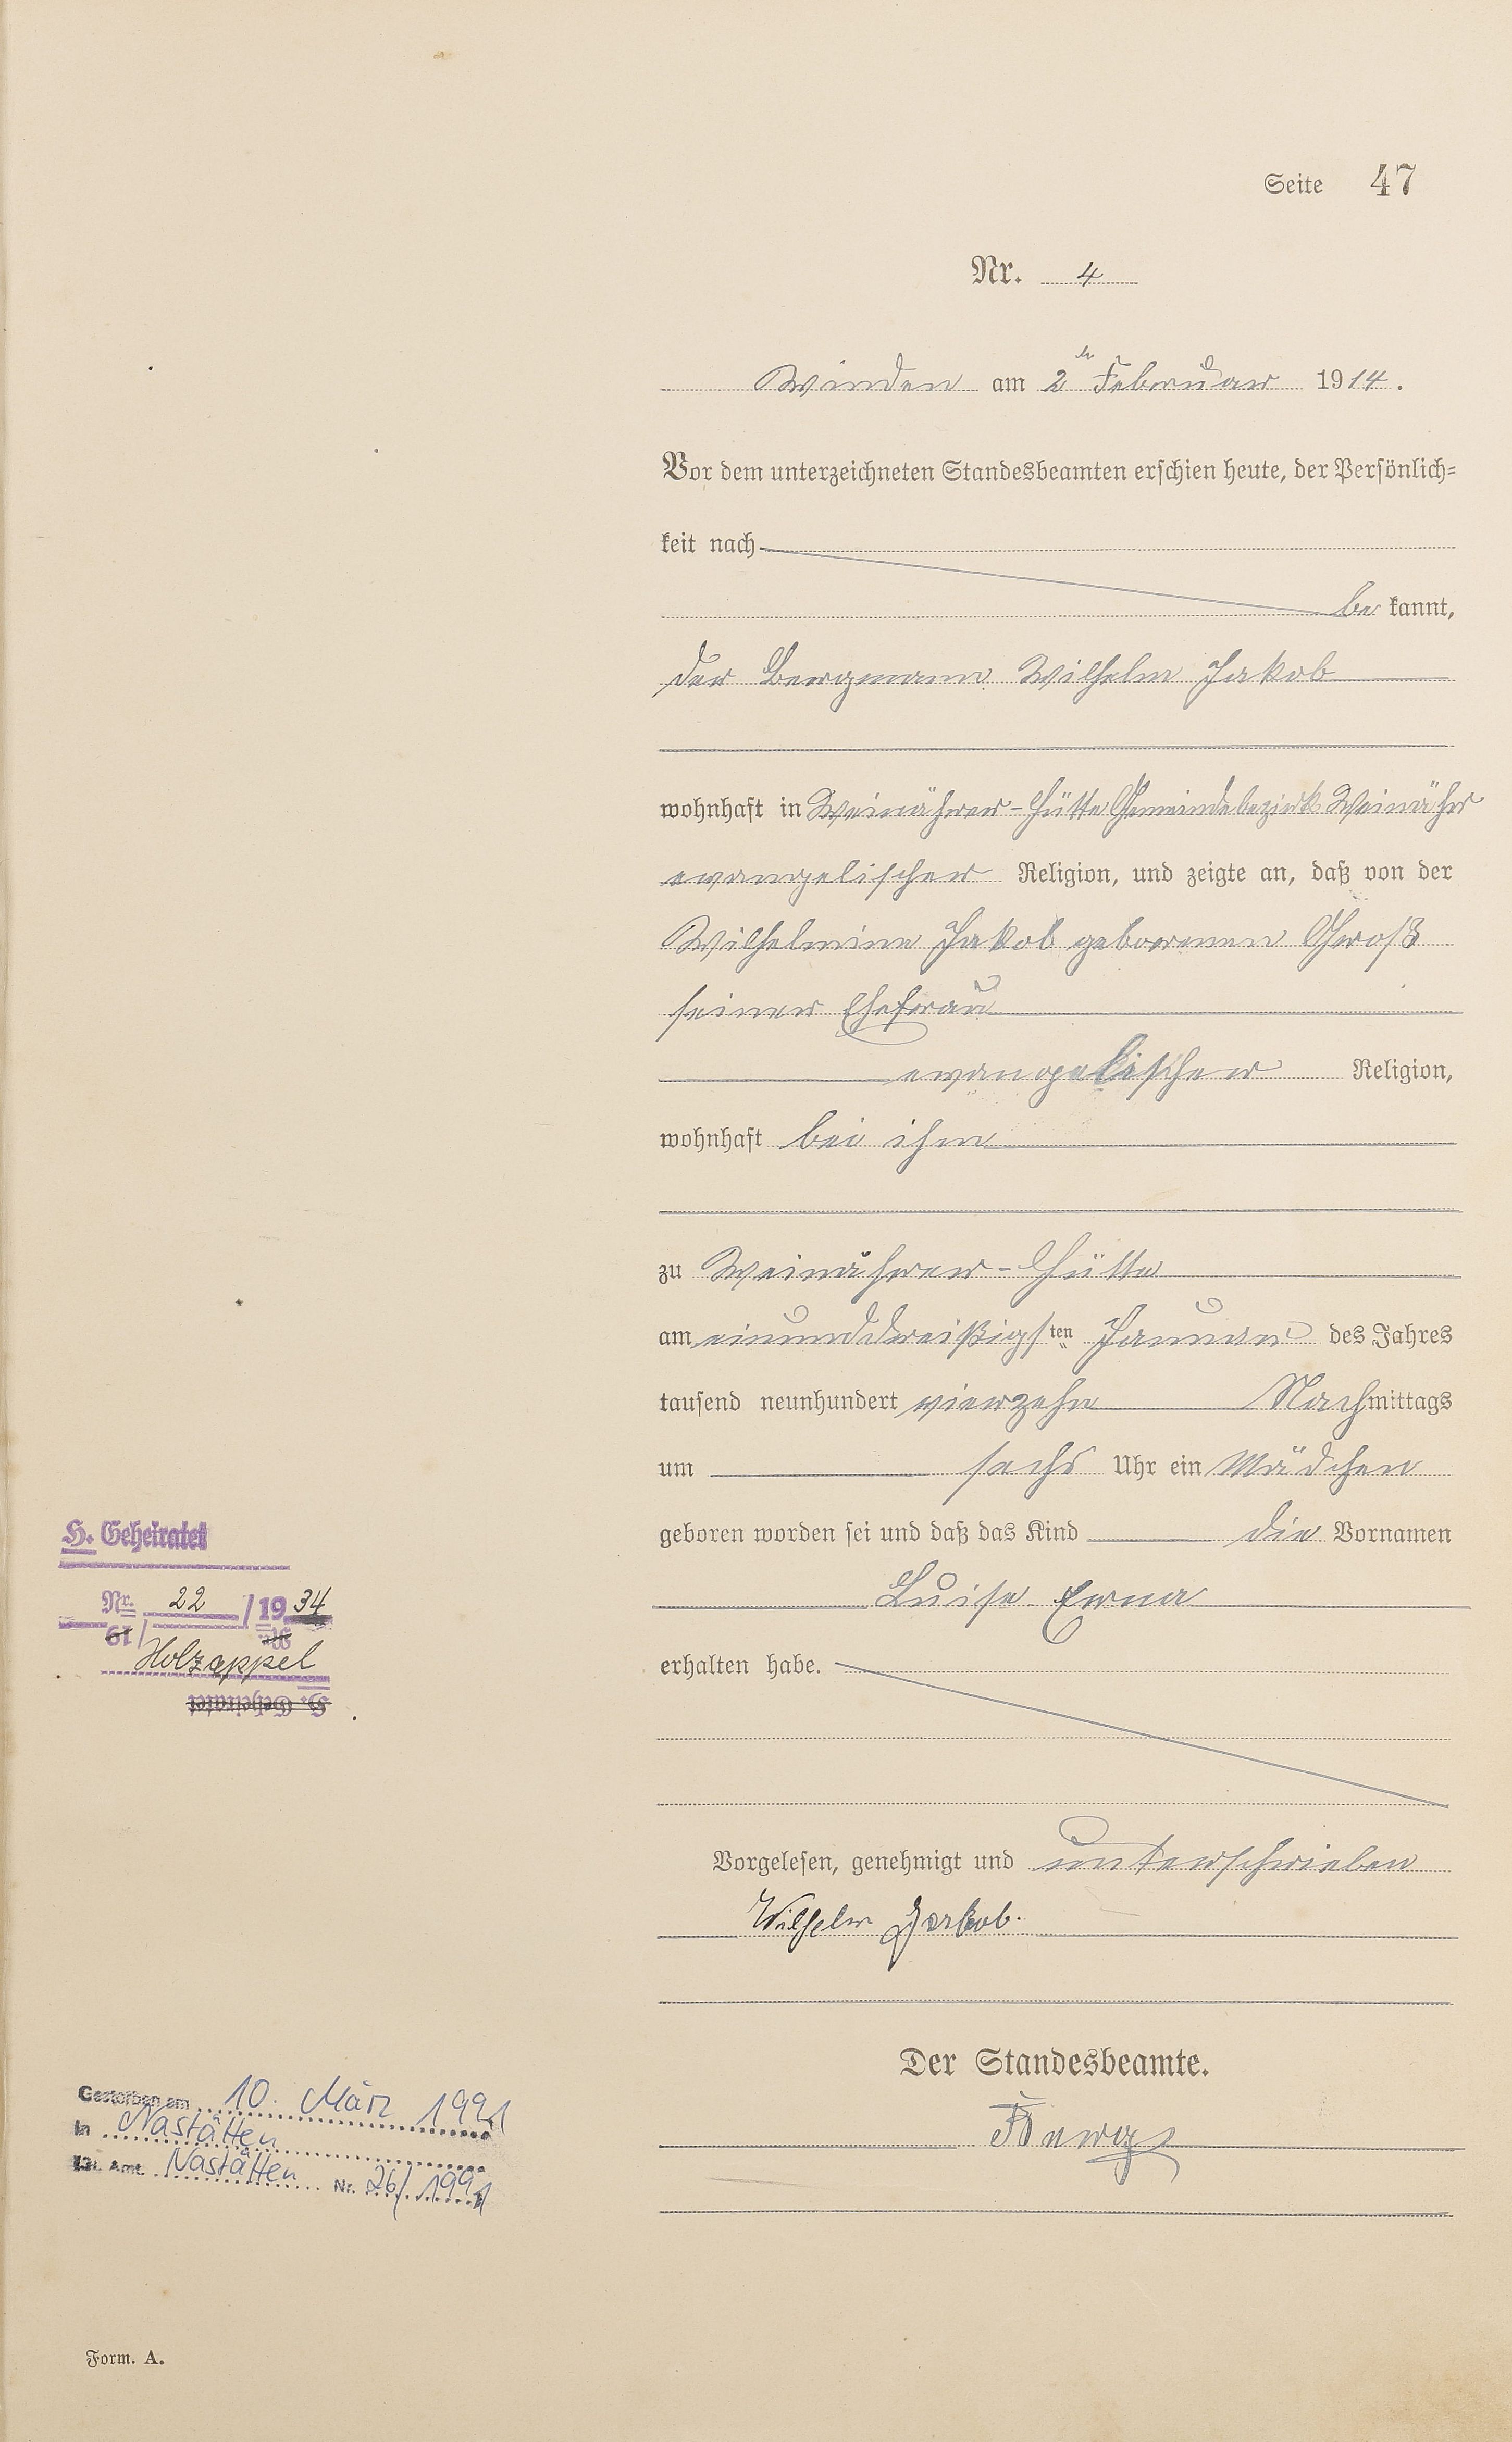 Seite 47
Nr. 4
Winden am 2ten Februar 1914.
Vor dem unterzeichneten Standesbeamten erschien heute, der Persönlich=
keit nach
be kannt,
der Bergmann Wilhelm Jakob
wohnhaft in Weinährer-Hütte Gemeindebezirk Weinähr
evangelischer Religion, und zeigte an, daß von der
Wilhelmine Jakob geborenen Groß
seiner Ehefrau
evangelischer Religion,
wohnhaft bei ihm
zu Weinährer-Hütte
am einunddreißigsten Januar des Jahres
tausend neunhundert vierzehn Nachmittags
um sechs Uhr ein Mädchen
geboren worden sei und daß das Kind die Vornamen
Luise Erna
erhalten habe.
Vorgelesen, genehmigt und unterschrieben
Wilhelm Jakob.
Der Standesbeamte.
H. Geheiratet
Nr. 22 / 1934
Nr. / 19
Holzappel
H. Geheiratet
Gestorben am 10. März 1991
in Nastätten
St. Amt. Nastätten Nr. 26/1991
Form. A.